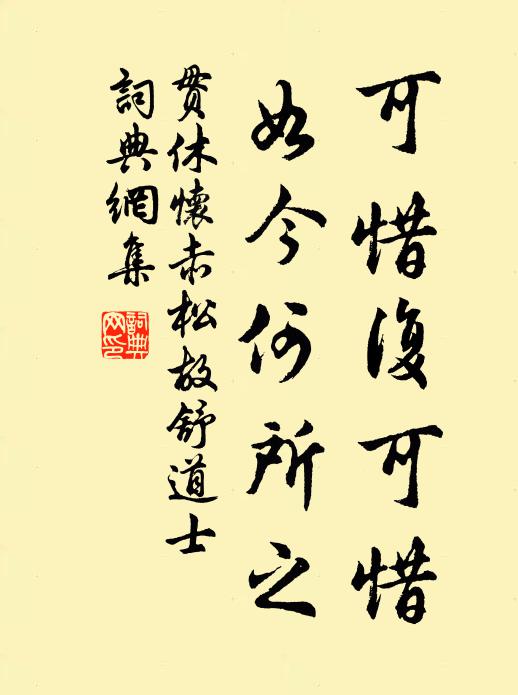 可惜復可惜
如今何所之
貫休懷赤松故舒道士
詞典網集
詞典網印